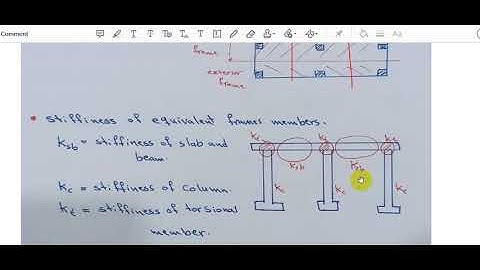 Comment
frame
exterior
frame
• stiffiness of equivalent frames members.
Ksb = stiffiness of slab and
beam.
Kc = stiffiness of column.
Kt = stiffiness of torsional
member.
Kt Kt Kt
Ksb Ksb
Kc Kc Kc